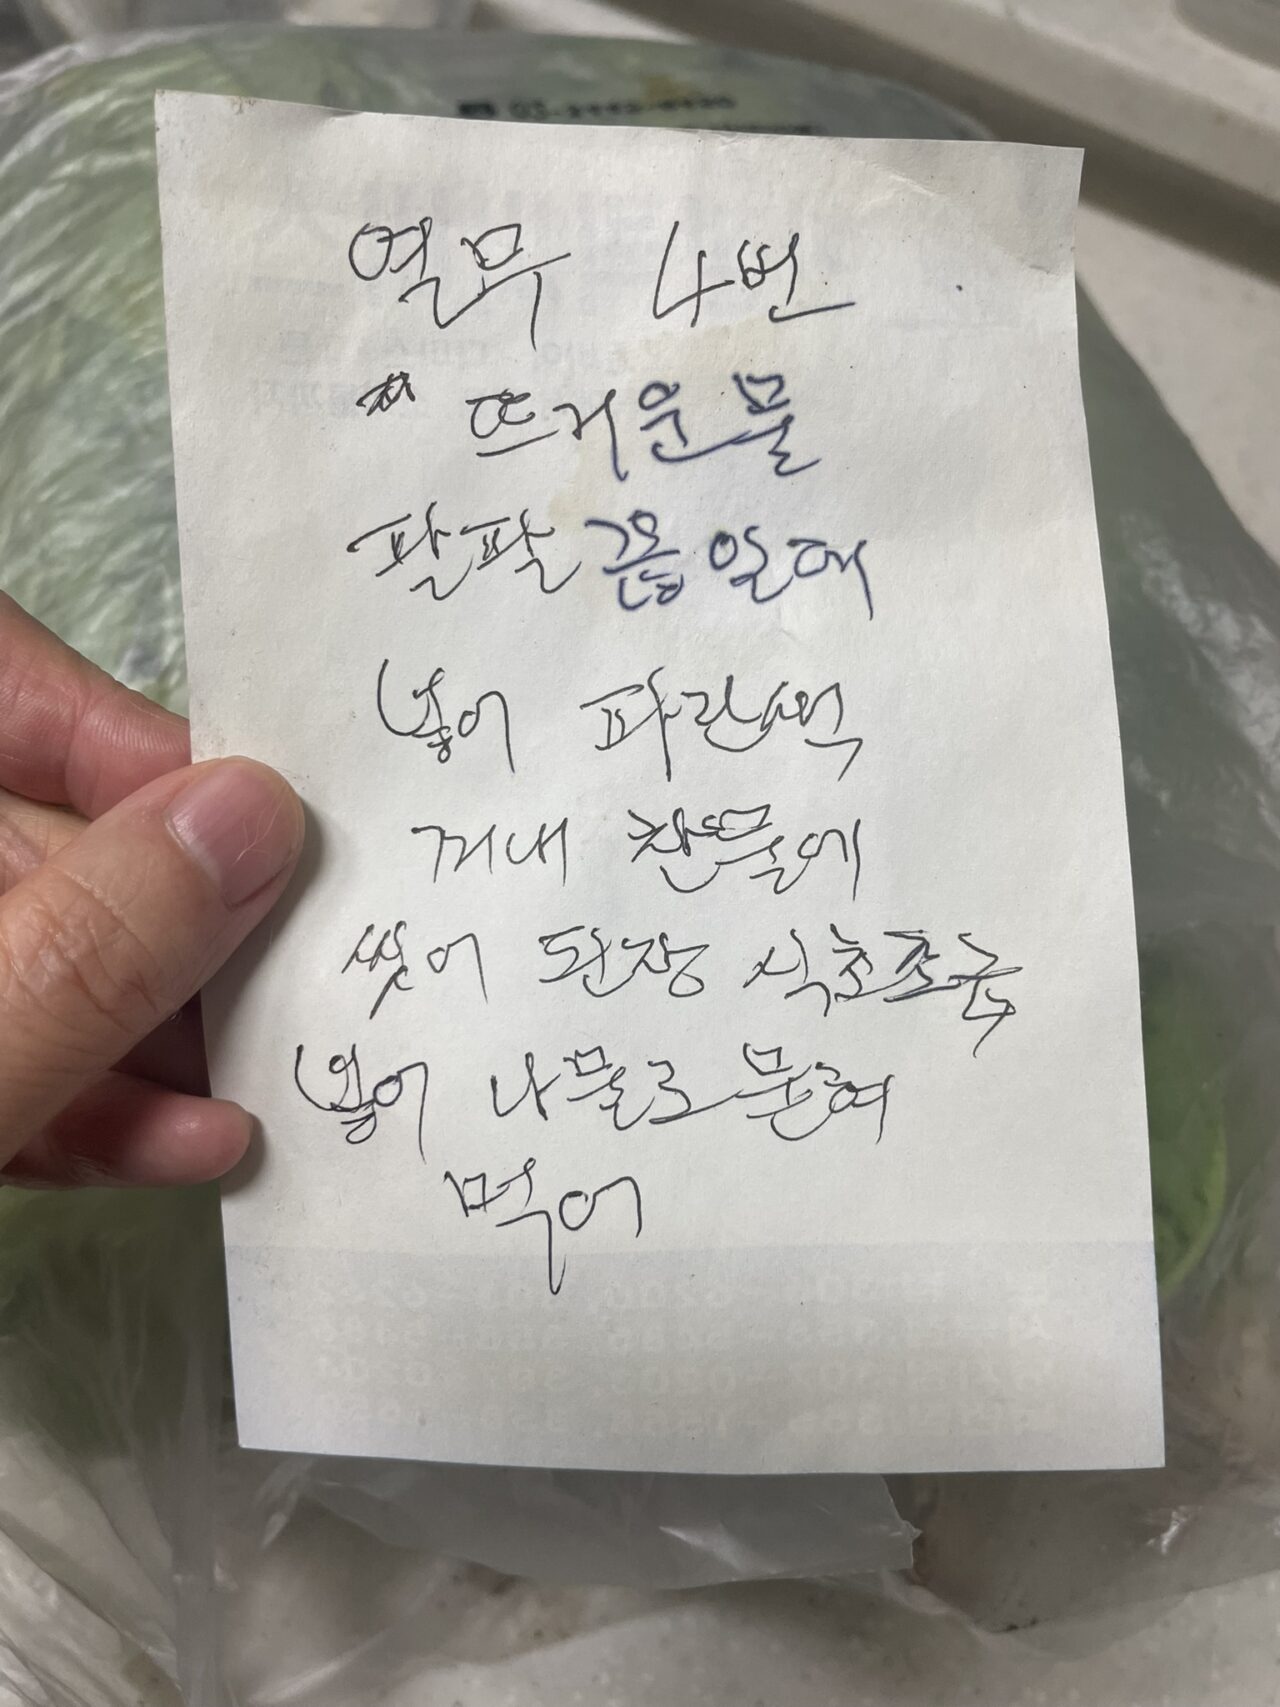 열무 4번
* 뜨거운물
팔팔 끓일때
넣어 파란색
꺼내 찬물에
씻어 된장 식초조금
넣어 나물로 무쳐
먹어